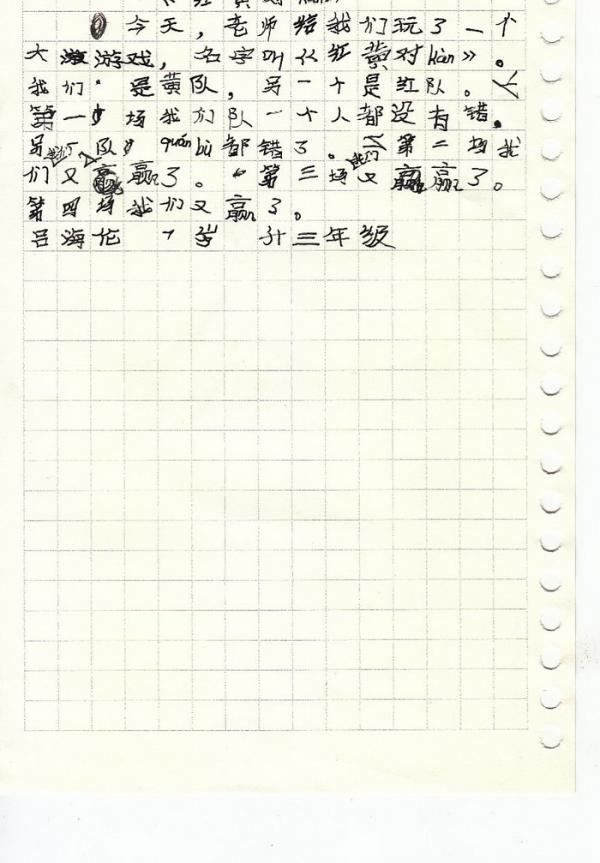 今天，老师给我们玩了一个
大游戏，名字叫《红黄对kàn》。
我们是黄队，另一个是红队。
第一场我们队一个人都没有错。
另一队quánbù都错了。第二场我
们又赢了。第三场我们又赢了。
第四场我们又赢了。
吕海伦 7岁 升三年级